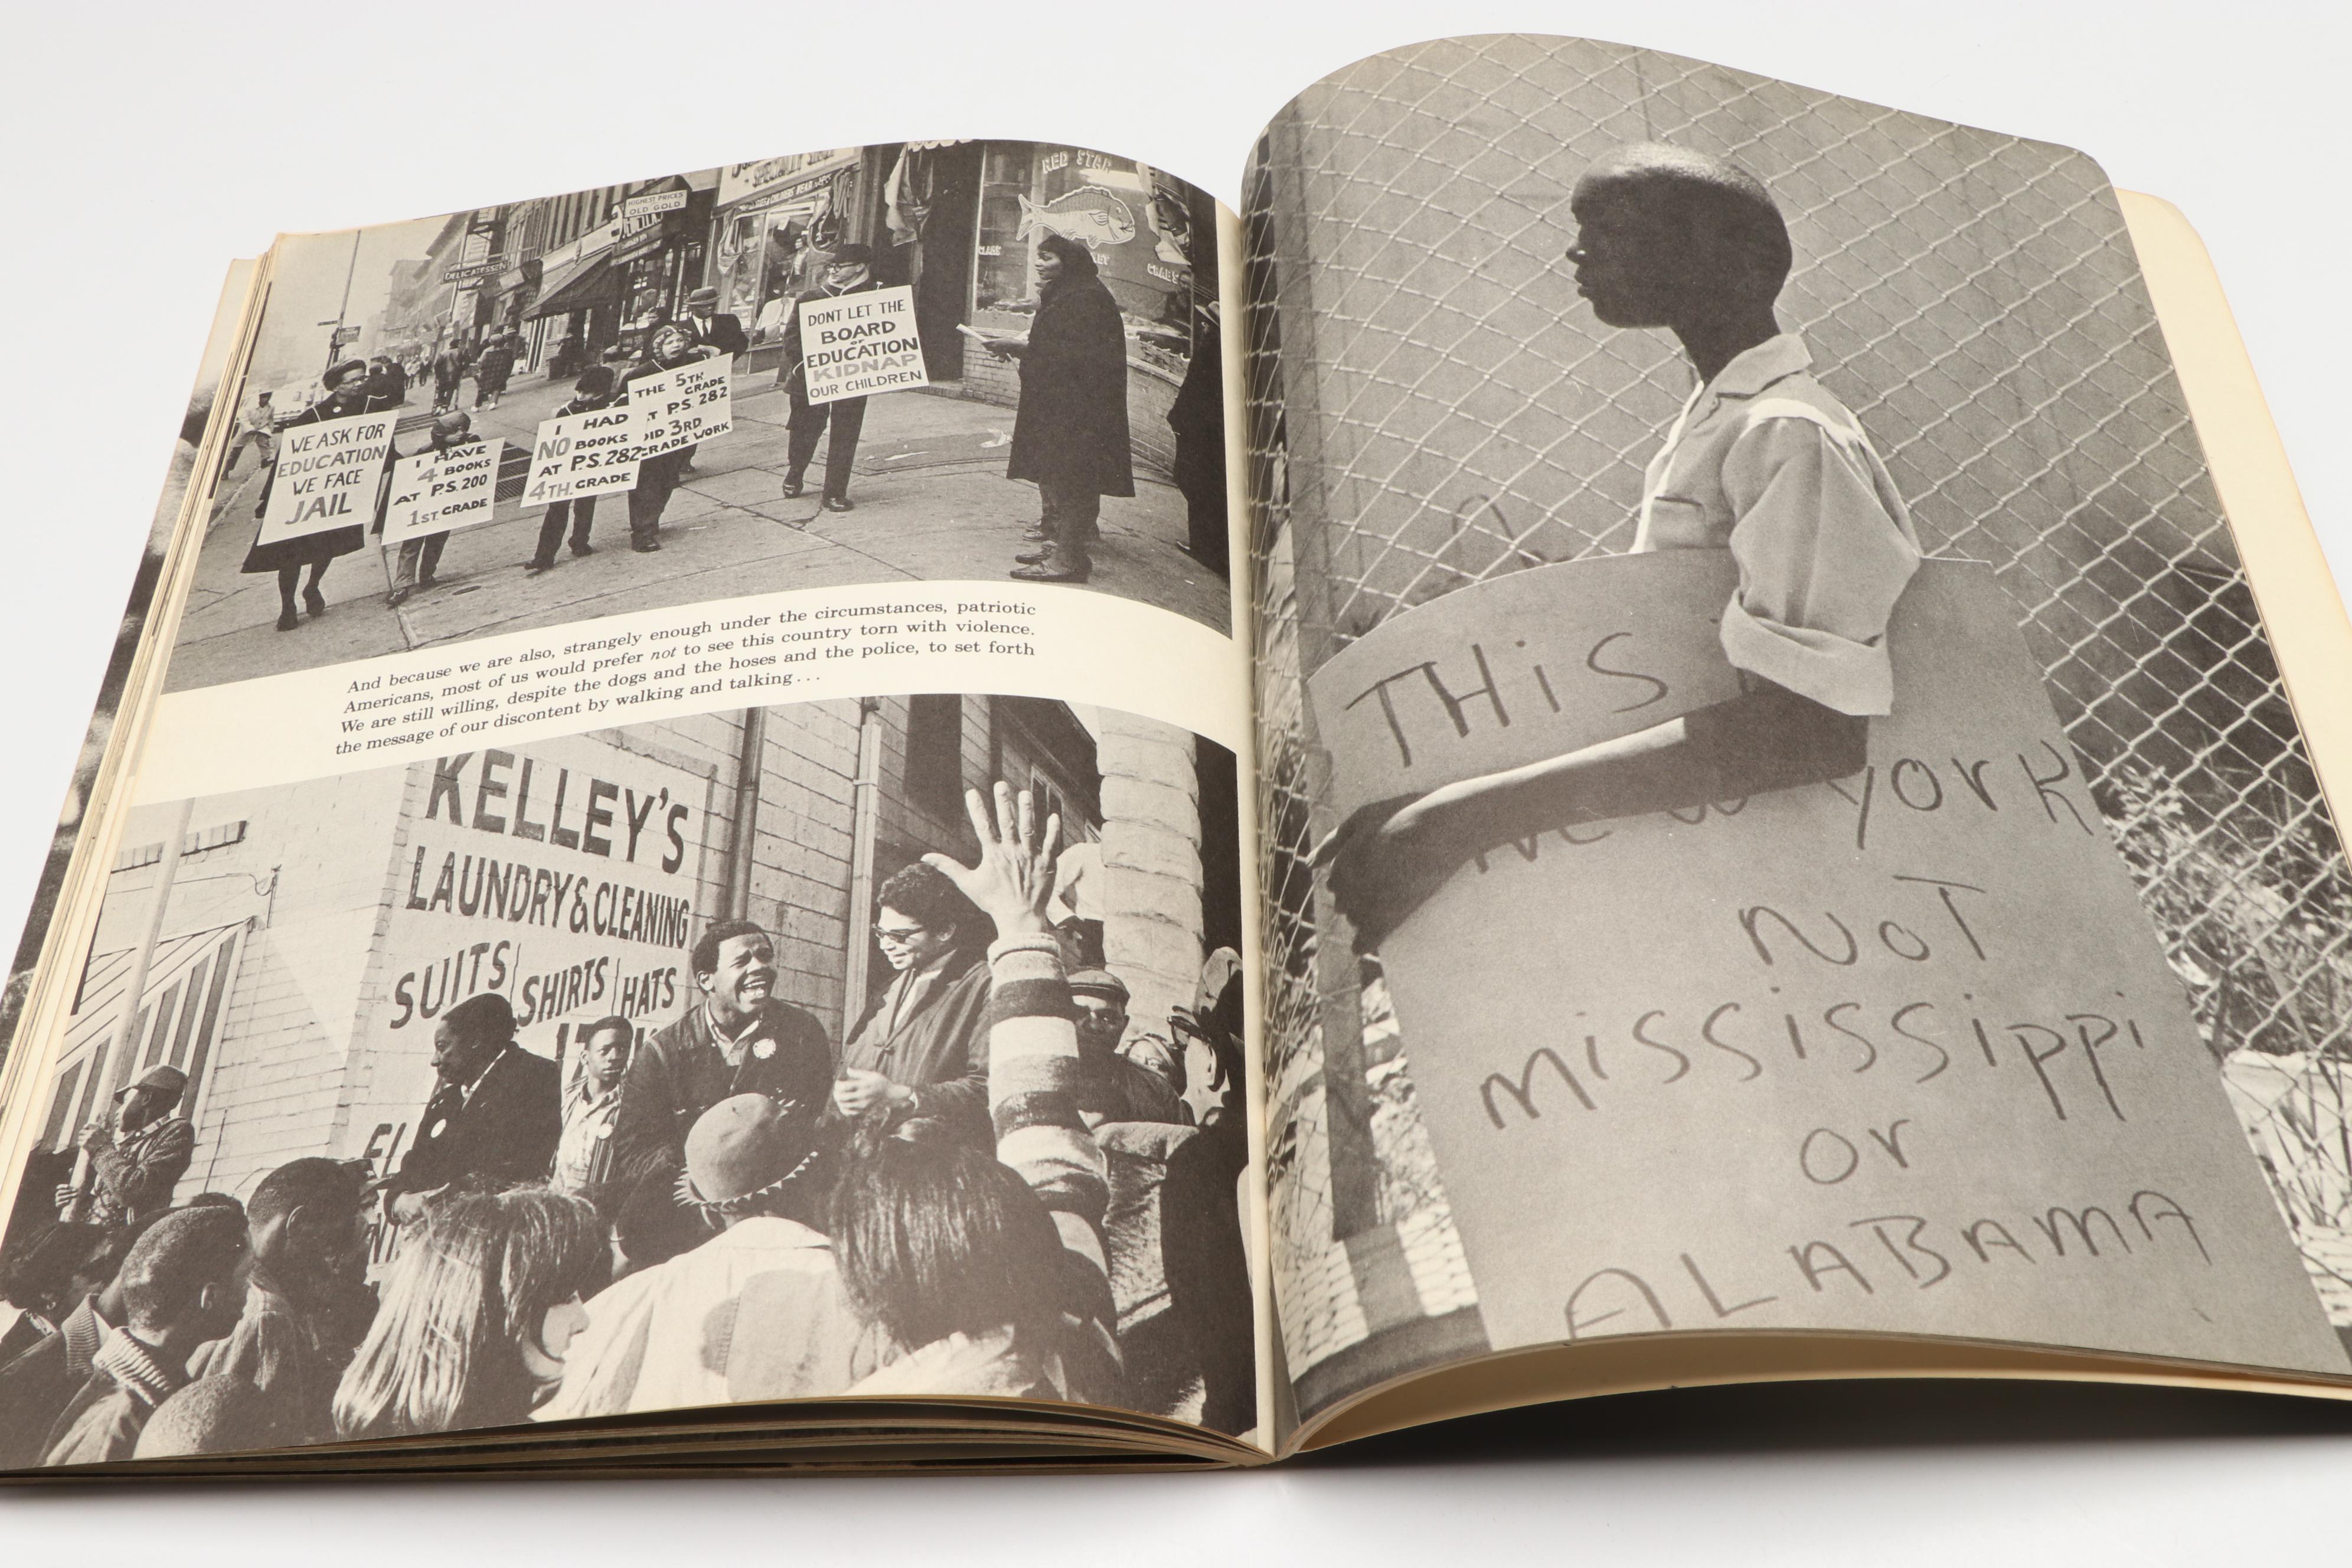 SPECIALTY SHOP
HIGHEST PRICES
OLD GOLD
DELICATESSEN
RED STAR
CLAM
CRABS
WE ASK FOR
EDUCATION
WE FACE
JAIL
I HAVE
4 BOOKS
AT P.S. 200
1ST. GRADE
I HAD
NO BOOKS
AT P.S. 282
4TH. GRADE
THE 5TH
GRADE
AT P.S. 282
DID 3RD
GRADE WORK
DONT LET THE
BOARD
OF
EDUCATION
KIDNAP
OUR CHILDREN
And because we are also, strangely enough under the circumstances, patriotic
Americans, most of us would prefer not to see this country torn with violence.
We are still willing, despite the dogs and the hoses and the police, to set forth
the message of our discontent by walking and talking . . .
KELLEY'S
LAUNDRY & CLEANING
SUITS SHIRTS HATS
THiS
New York
NoT
Mississippi
or
ALABAMA